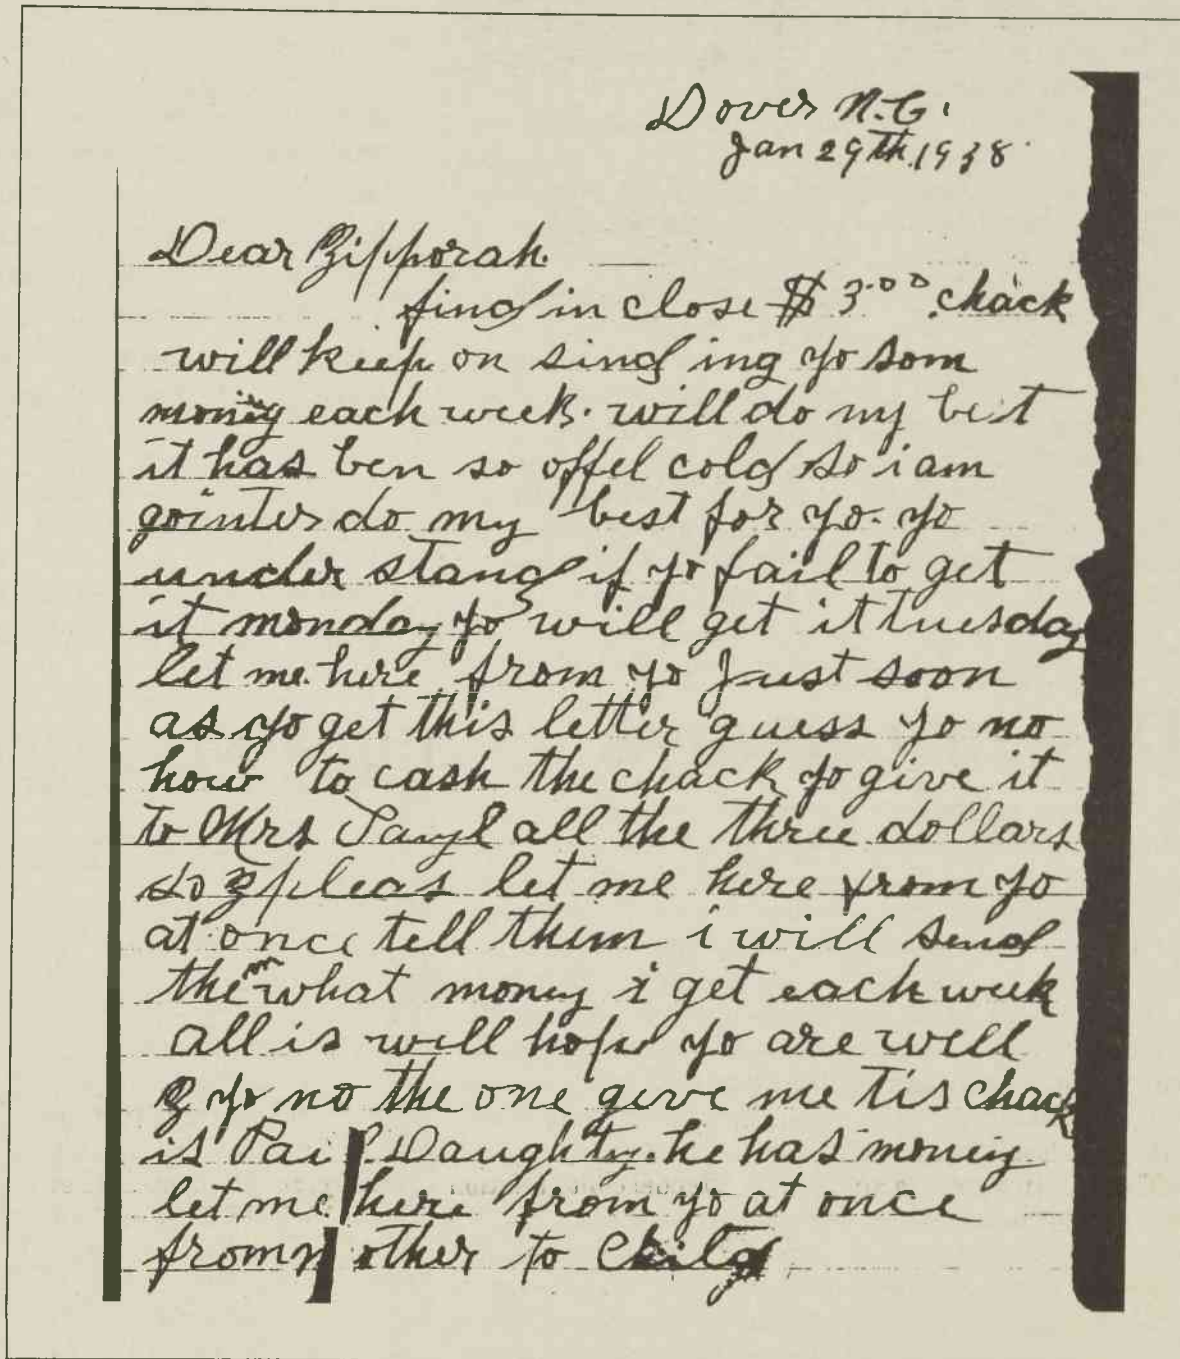 Dover N.C.
Jan 29th, 1938
Dear Zipporah.
find in close $3.00 chack
will keep on sinding yo som
moniy each week. will do my best
it has ben so offel cold so i am
gointer do my best for yo. yo
under stand if yo fail to get
it monday yo will get it tuesday
let me here from yo Just soon
as yo get this letter guess yo no
how to cash the chack yo give it
to Mrs all the three dollars
so Z pleas let me here from yo
at once tell them i will send
them what money i get each week
all is well hope yo are well
Z yo no the one geve me tis chack
is Daughty. he has moniy
let me here from yo at once
from mother to Child